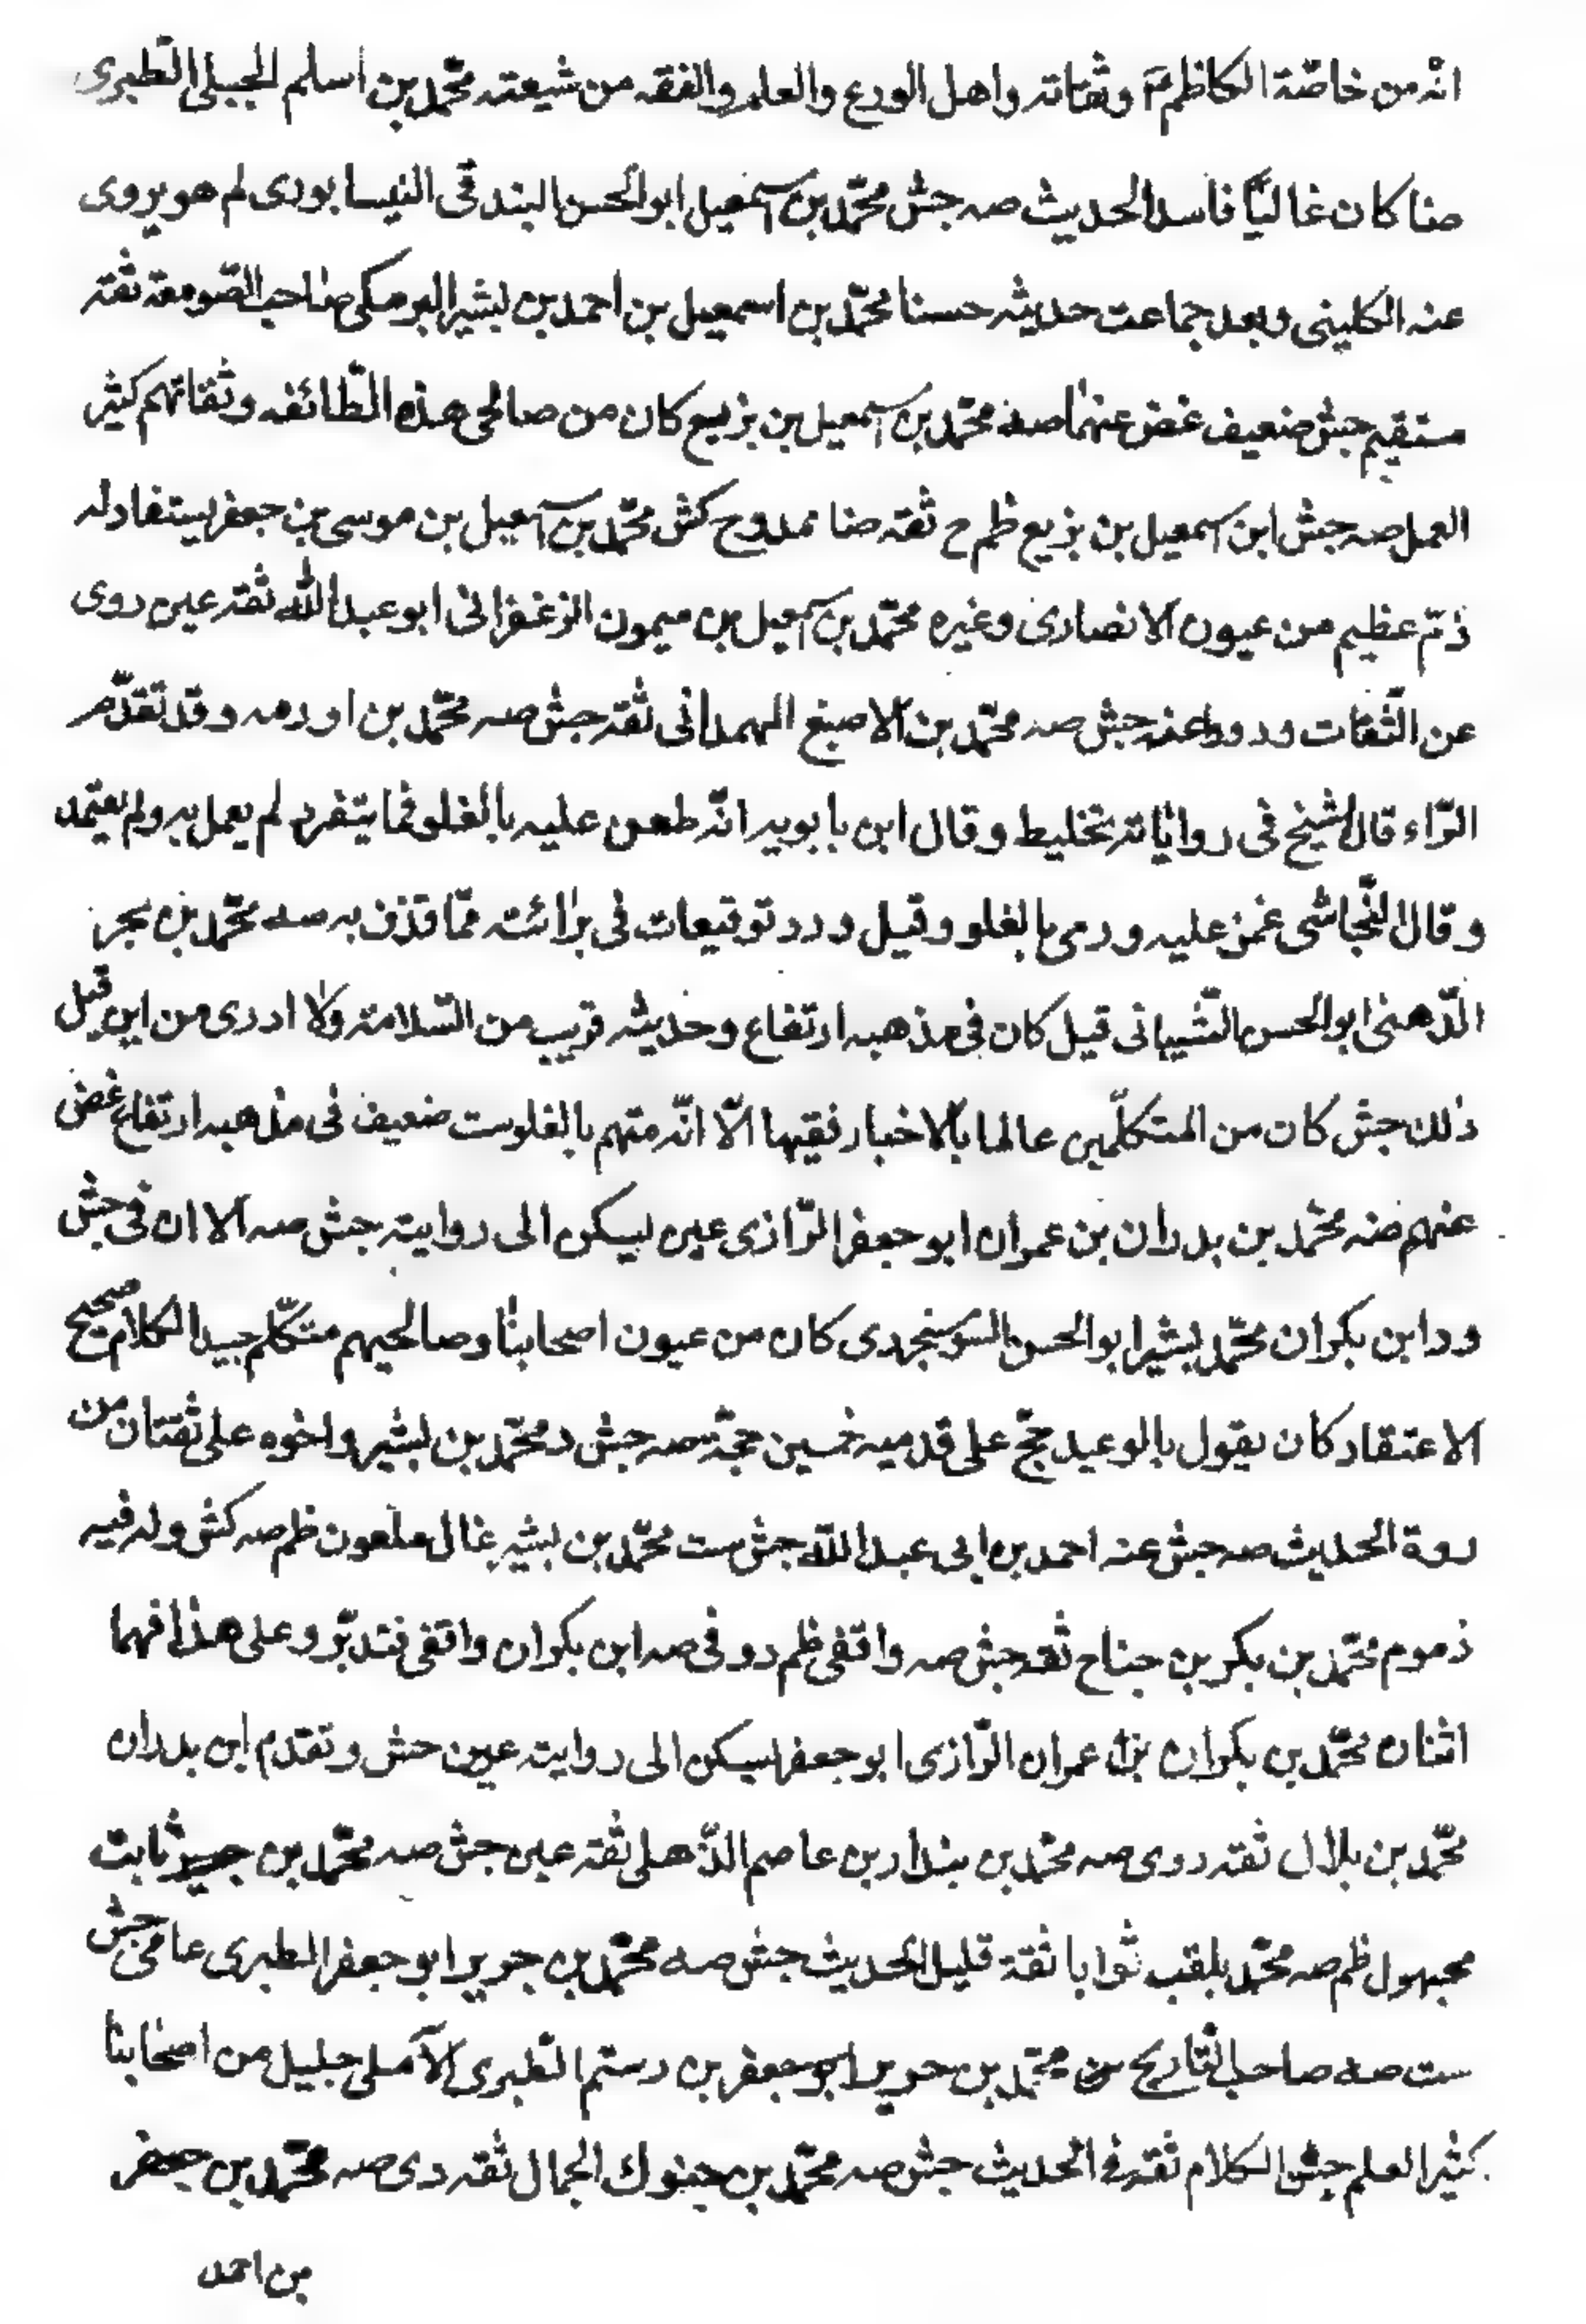 انّه من خاصّة الكاظم عم وثقاته واهل الورع والعلم والفقه من شيعته محمّد بن اسلم الجبلى الطّبرى
ضا كان غاليًا فاسد الحديث صه جش محمّد بن اسمعيل ابو الحسن البندقى النيسابورى لم هو يروى
عنه الكلينى وبعد جماعت حديثه حسنا محمّد بن اسمعيل بن احمد بن بشير البرمكى صاحب الصّومعة ثقته
مستقيم جش ضعيف غض عنهما صه محمّد بن اسمعيل بن بزيع كان من صالحى هذه الطّائفه وثقاتهم كثير
العمل صه جش ابن اسمعيل بن بزيع ظم ح ثقه ضا ممدوح كش محمّد بن اسمعيل بن موسى بن جعفر يستفاد له
ذمّ عظيم من عيون الانصارى وغيره محمّد بن اسمعيل بن ميمون الزعفرانى ابو عبد الله ثقته عين روى
عن الثّقات ورووا عنه جش صه محمّد بن الاصبغ الهمدانى ثقته جش صه محمّد بن اورمه وقد تقدّم
الرّاء قال الشيخ فى رواياته تخليط وقال ابن بابويه انّه طعن عليه بالغلو فما يتفرد لم يعمل به ولم يعتمد
وقال النّجاشى غمز عليه ورمى بالغلو وقيل ورد توقيعات فى برائته ممّا قذف به صه محمّد بن بحر
الدّهنى ابو الحسن الشّيبانى قيل كان فى مذهبه ارتفاع وحديثه قريب من السّلامة ولا ادرى من اين قيل
ذلك جش كان من المتكلّمين عالما بالاخبار فقيها الّا انّه متهم بالغلو ست ضعيف فى مذهبه ارتفاع غض
عنهم ضه محمّد بن بدران بن عمران ابو جعفر الرّازى عين ليسكن الى روايته جش صه الا ان فى جش
ود ابن بكران محمّد بشير ابو الحسن السّوسنجردى كان من عيون اصحابنا وصالحيهم متكلّم جيد الكلام صحيح
الاعتقاد كان يقول بالوعيد حجّ على قدميه خمسين حجّة صه جش د محمّد بن بشير واخوه على ثقتان من
روة الحديث صه جش عنه احمد بن ابى عبد اللّه جش ست محمّد بن بشير غال ملعون ظم صه كش وله فيه
ذموم محمّد بن بكر بن جناح ثقه جش صه واقفى ظم د وفى صه ابن بكران واقفى فتدبّر وعلى هذا فهما
اثنان محمّد بن بكران بن عمران الرّازى ابو جعفر ليسكن الى روايته عين حش وتقدم ابن بدران
محمّد بن بلال ثقته روى صه محمّد بن بندار بن عاصم الذّهلى ثقته عين جش صه محمّد بن ثابت
مجهول ظم صه محمّد يلقب ثوابا ثقة قليل الحديث جش صه محمّد بن جرير ابو جعفر الطبرى عامى جش
ست صه صاحب التّاريخ محمّد بن جرير ابو جعفر بن رستم الطّبرى الآملى جليل من اصحابنا
كثير العلم جش الكلام ثقته فى الحديث جش صه محمّد بن الجمال ثقه دى صه محمّد بن جعفر
بن احمد